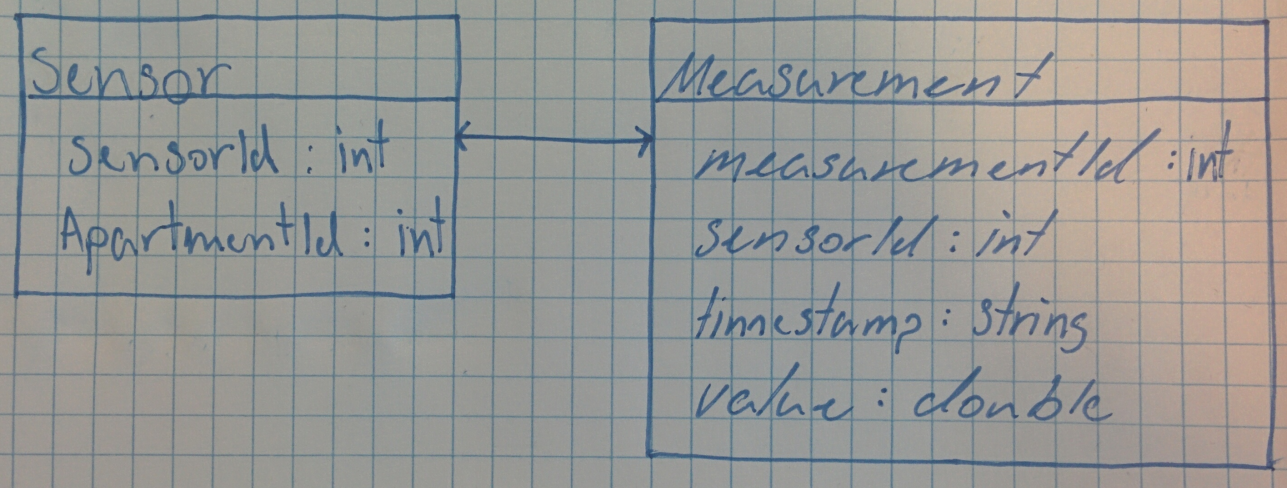 Sensor
sensorId : int
ApartmentId : int
Measurement
measurementId : int
sensorId : int
timestamp : string
value : double